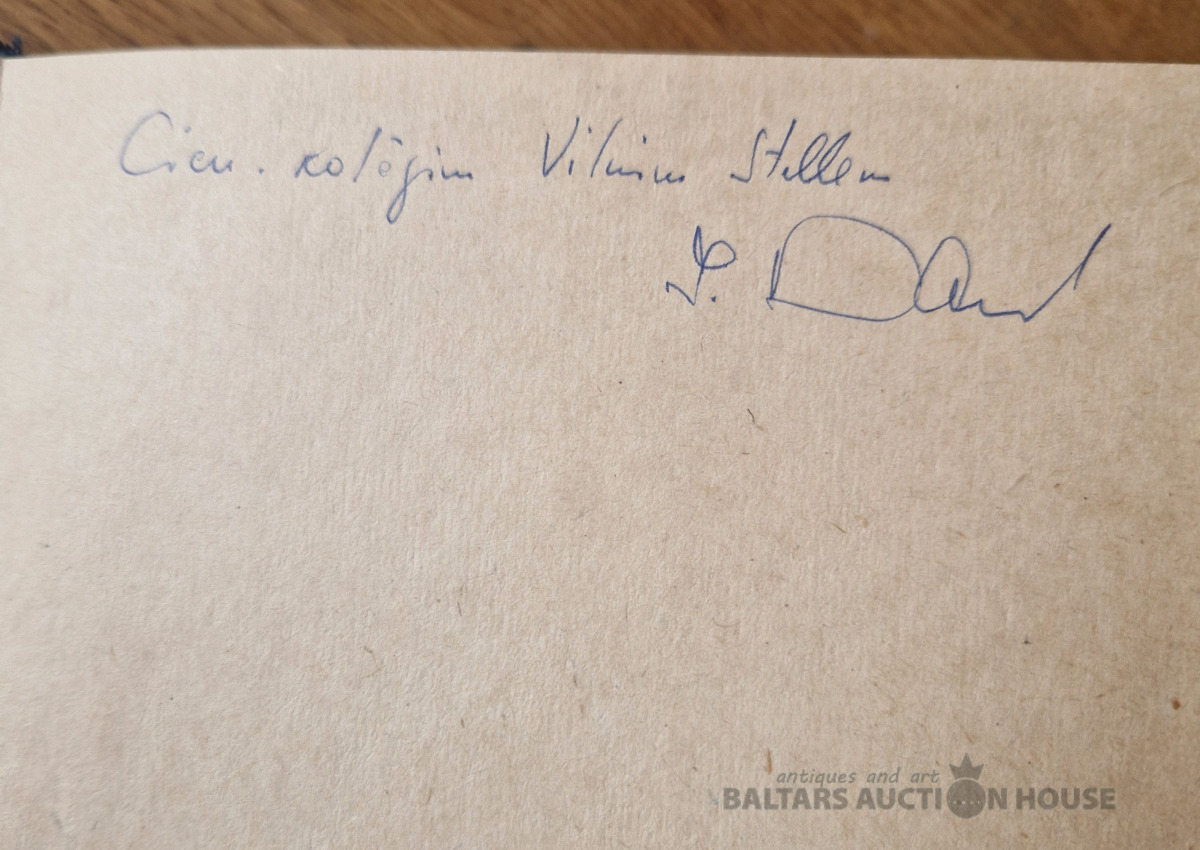 Cien. kolēģim Vilnim Stellem
antiques and art
BALTARS AUCTION HOUSE